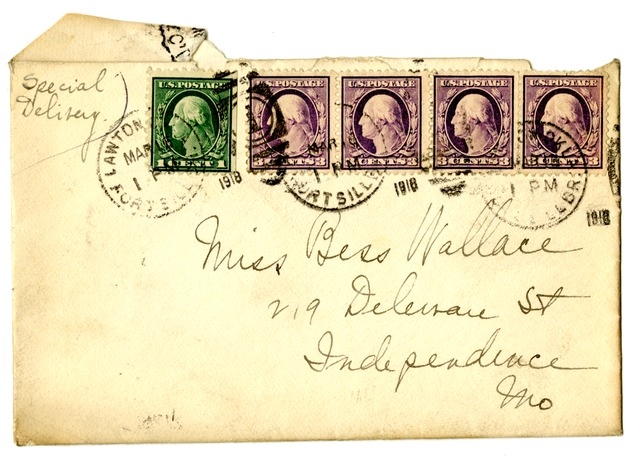 Special
Delivery.
U.S. POSTAGE U.S. POSTAGE U.S. POSTAGE U.S. POSTAGE U.S. POSTAGE
1 CENT 3 CENTS 3 3 CENTS 3 3 CENTS 3 3 CENTS 3
LAWTON
MAR MAR
1 PM 1 PM 1 PM
FORT SILL FORT SILL
1918 1918 1918
Miss Bess Wallace
219 Deleware St
Independence
Mo